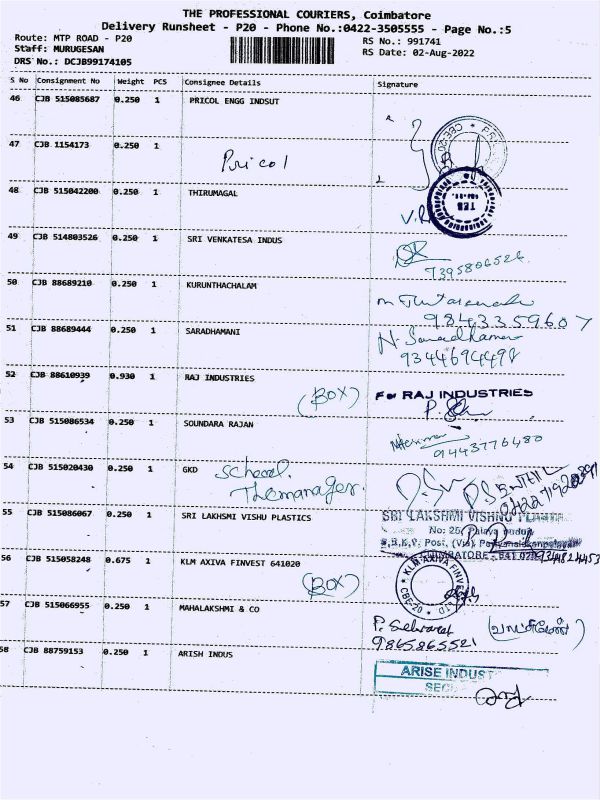 THE PROFESSIONAL COURIERS, Coimbatore
Delivery Runsheet - P20 - Phone No.:0422-3505555 - Page No.:5
Route: MTP ROAD - P20
RS No.: 991741
Staff: MURUGESAN
RS Date: 02-Aug-2022
DRS No.: DCJB99174105
S No Consignment No Weight PCS Consignee Details Signature
46 CJB 515085687 0.250 1 PRICOL ENGG INDSUT
47 CJB 1154173 0.250 1 Pricol
48 CJB 515042200 0.250 1 THIRUMAGAL
49 CJB 514803526 0.250 1 SRI VENKATESA INDUS
7395806526
50 CJB 88689210 0.250 1 KURUNTHACHALAM
9843359607
51 CJB 88689444 0.250 1 SARADHAMANI
9344694498
52 CJB 88610939 0.930 1 RAJ INDUSTRIES
(BOX) For RAJ INDUSTRIES
53 CJB 515086534 0.250 1 SOUNDARA RAJAN
9443776480
54 CJB 515020430 0.250 1 GKD School.
Themanager.
55 CJB 515086067 0.250 1 SRI LAKHSMI VISHU PLASTICS
SRI LAKSHMI VISHNU
56 CJB 515058248 0.675 1 KLM AXIVA FINVEST 641020
(BOX) KLM AXIVA FINVEST
CBE-20
57 CJB 515066955 0.250 1 MAHALAKSHMI & CO
9865865521
58 CJB 88759153 0.250 1 ARISH INDUS
ARISE INDUST